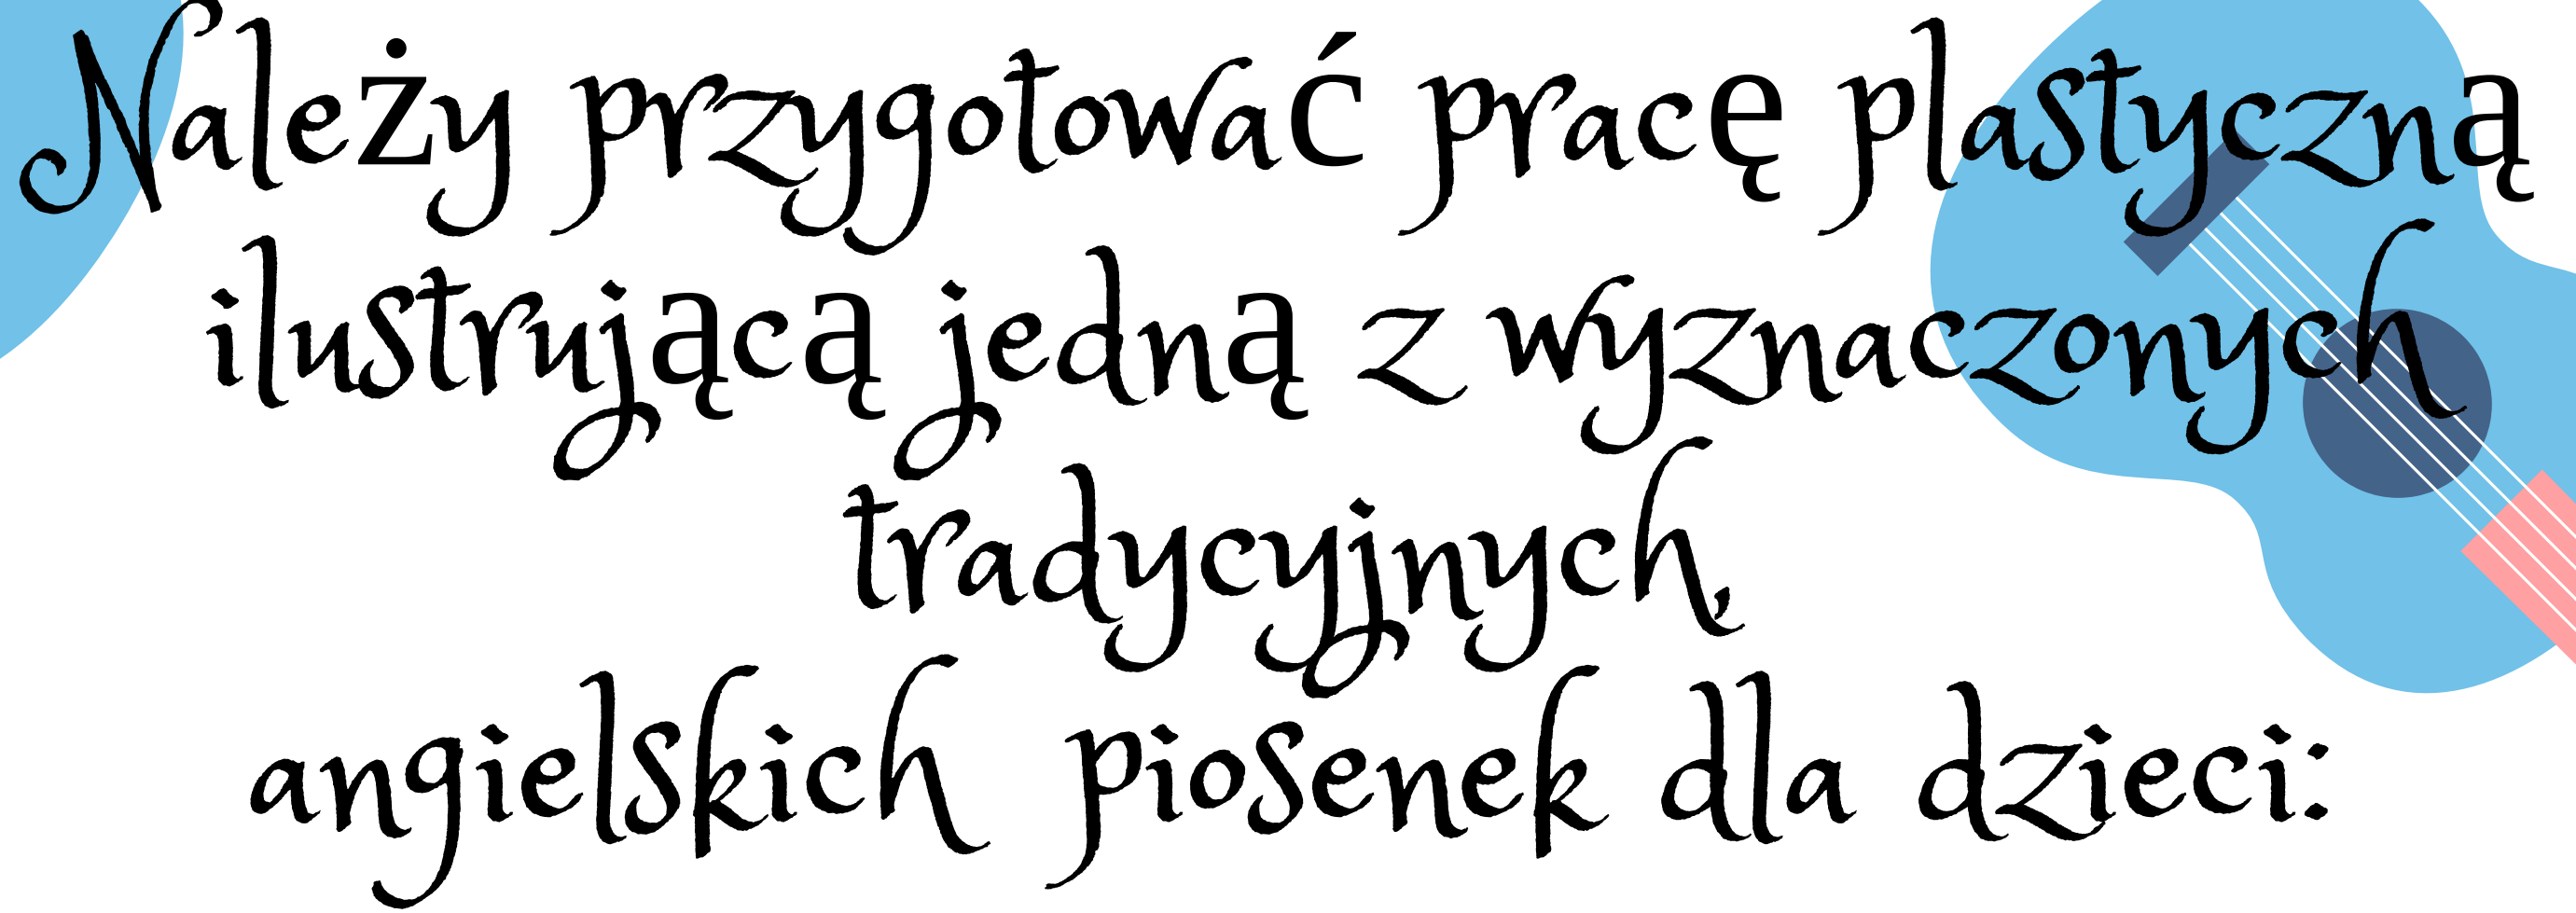 Należy przygotować pracę plastyczną
ilustrującą jedną z wyznaczonych
tradycyjnych,
angielskich piosenek dla dzieci: